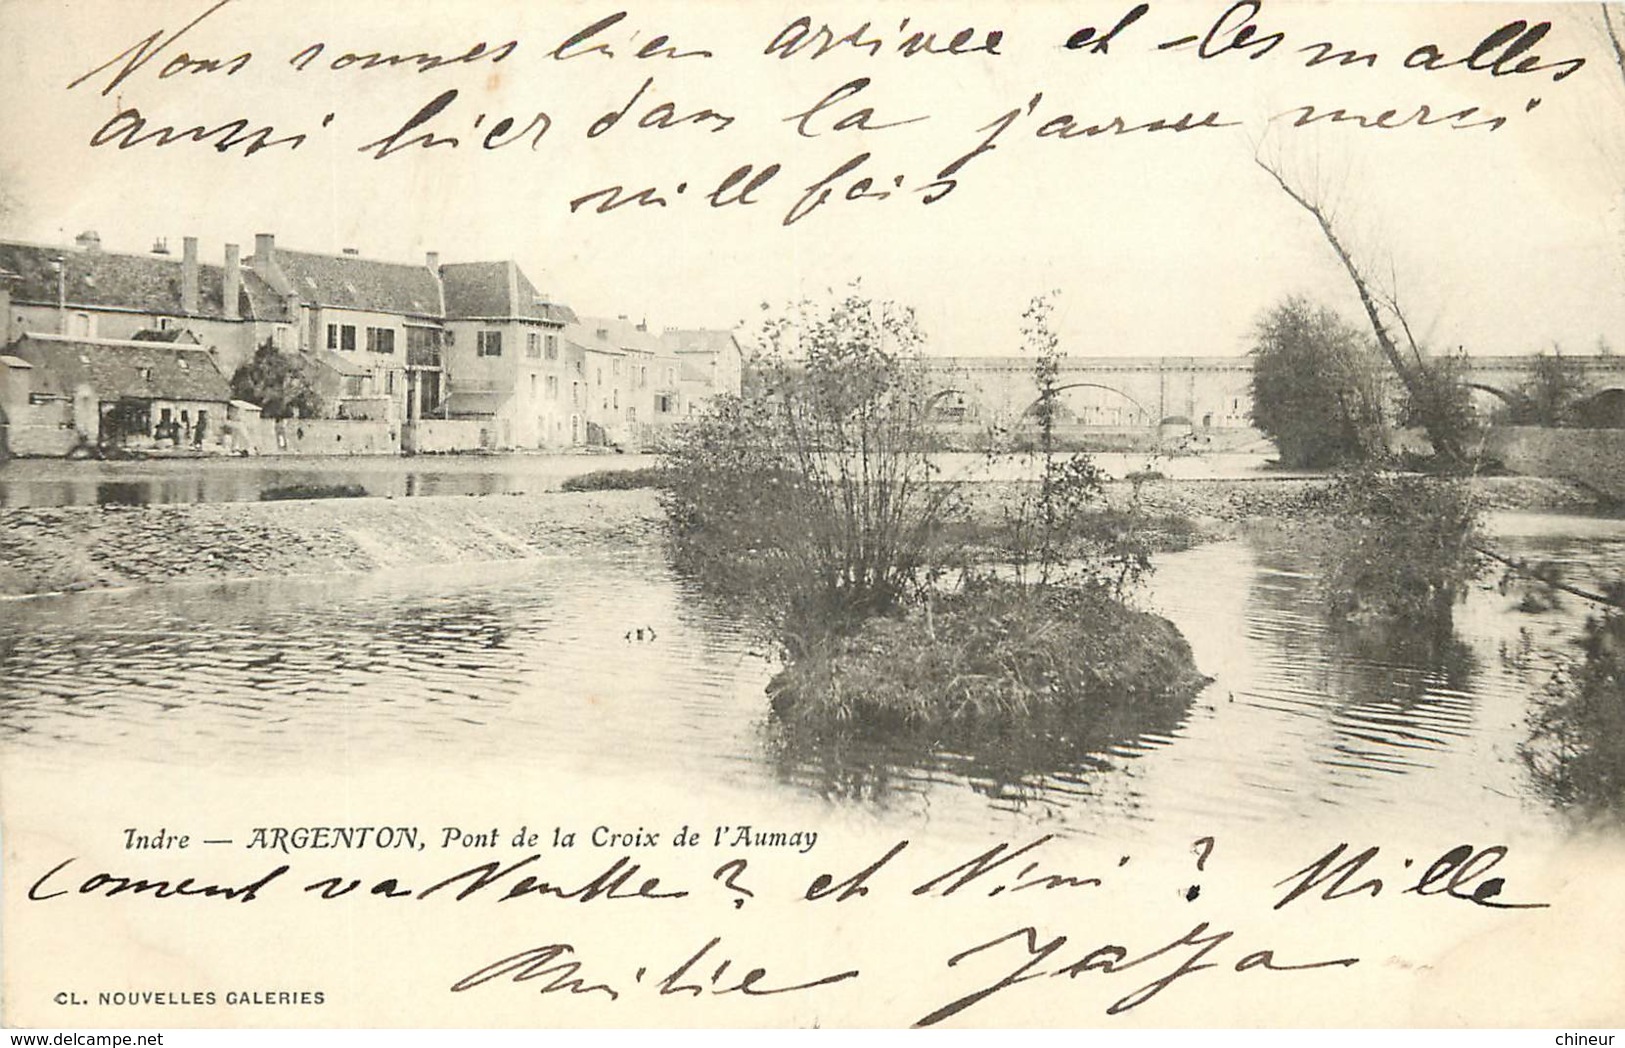 Nous sommes bien arrivee et les malles
aussi hier dans la journe merci
mill fois
Indre — ARGENTON, Pont de la Croix de l'Aumay
Coment va Nenette? et Nini? Mille
Amitie Jaja
CL. NOUVELLES GALERIES
chineur